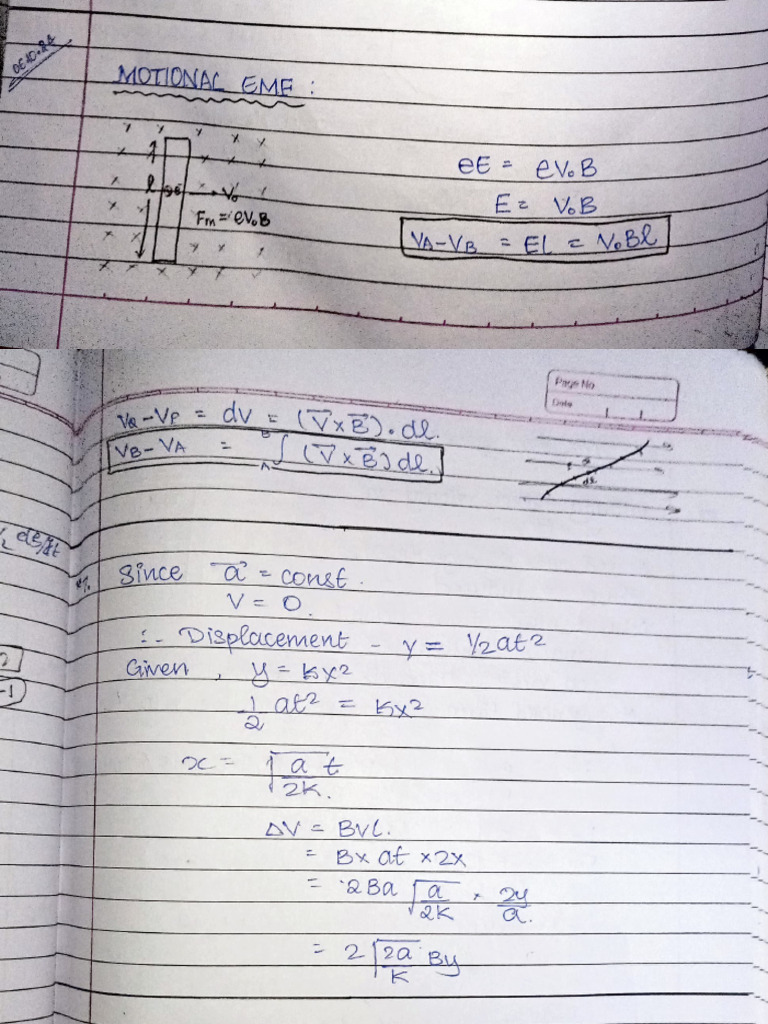 MOTIONAL EMF :
l
V₀
Fm = eV₀B
eE = eV₀B
E = V₀B
VA-VB = El = V₀Bl
Page No.
Date
VQ-VP = dV = (V⃗×B⃗).dl.
VB-VA = ∫ᴬᴮ (V⃗×B⃗)dl.
dl
Since a⃗ = const.
V = 0.
∴ Displacement - y = 1/2at²
Given, y = kx²
1/2 at² = kx²
x = √(a/2k) t
ΔV = BVl.
= B× at ×2x
= 2Ba √(a/2k) × 2y/a.
= 2√(2a/k) By